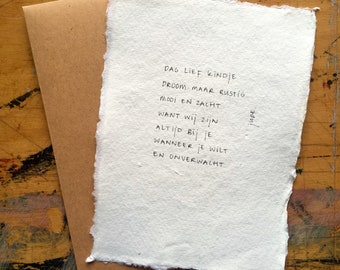 DAG LIEF KINDJE
DROOM MAAR RUSTIG
MOOI EN ZACHT
WANT WIJ ZIJN
ALTIJD BIJ JE
WANNEER JE WILT
EN ONVERWACHT